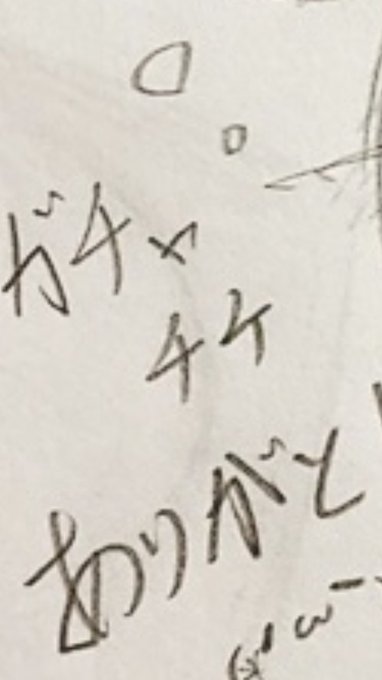 ガチャ
チケ
ありがと